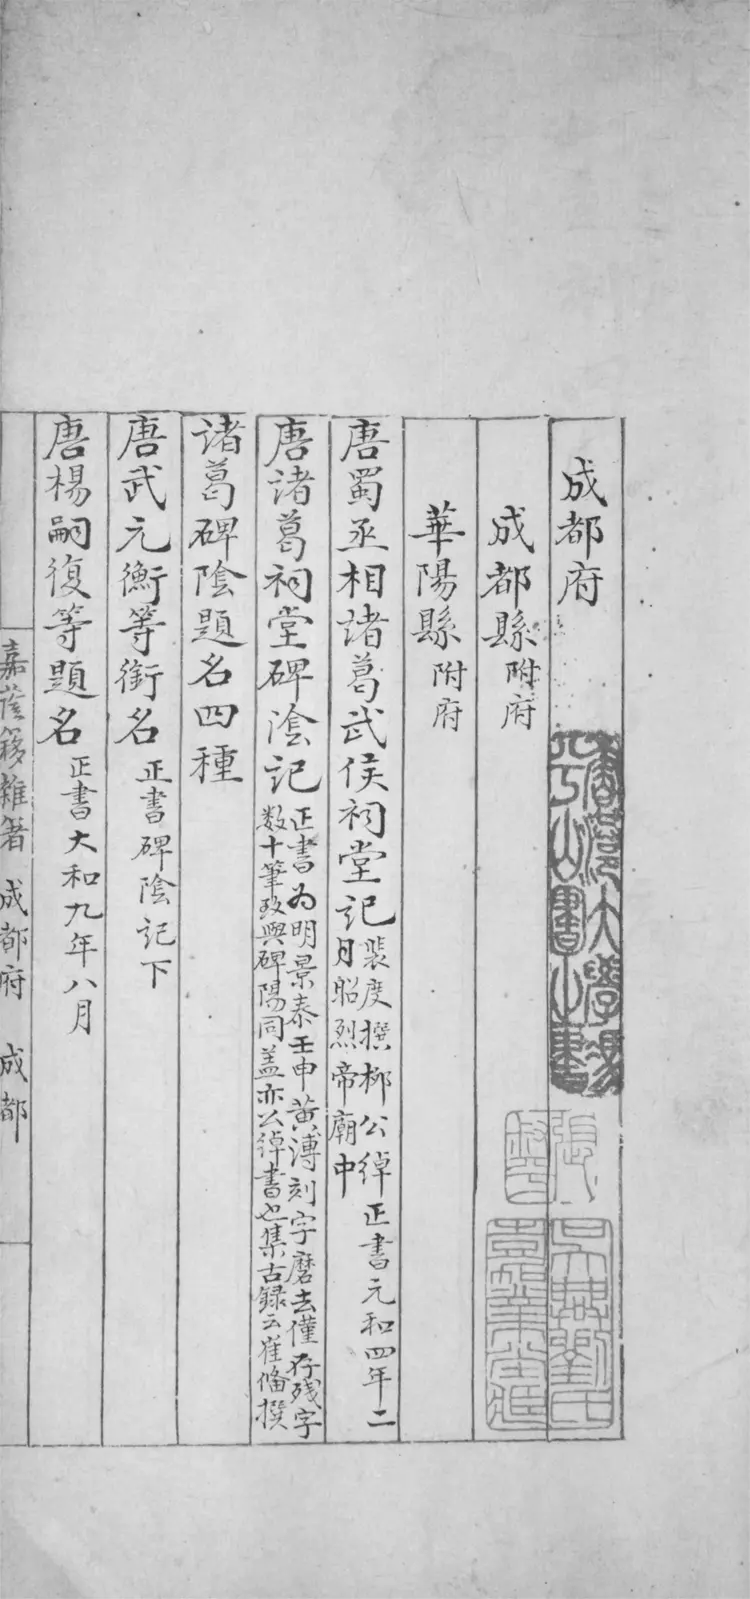 成都府
成都縣附府
華陽縣附府
唐蜀丞相諸葛武侯祠堂記裴度撰柳公綽正書元和四年二
月昭烈帝廟中
唐諸葛祠堂碑陰記正書为明景泰壬申黄溥刻字磨去僅存残字
数十筆致與碑陽同盖亦公綽書也集古録云崔俻撰
諸葛碑陰題名四種
唐武元衡等銜名正書碑陰記下
唐楊嗣復等題名正書大和九年八月
嘉蔭簃雜著 成都府 成都
吳興劉氏
嘉業堂藏